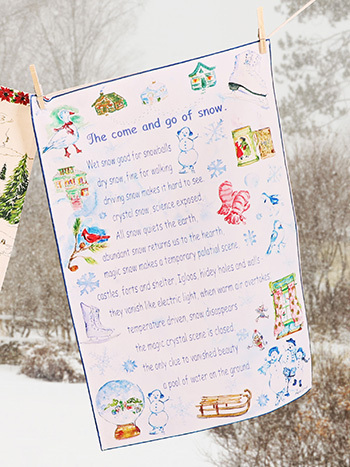 The come and go of snow.
Wet snow good for snowballs
dry snow, fine for walking
driving snow makes it hard to see.
crystal snow, science exposed.
All snow quiets the earth,
abundant snow returns us to the hearth.
magic snow makes a temporary palatial scene.
castles, forts and shelter. Igloos, hidey holes and wells
they vanish like electric light, when warm air overtakes.
temperature driven, snow disappears
the magic crystal scene is closed.
the only clue to vanished beauty
a pool of water on the ground.